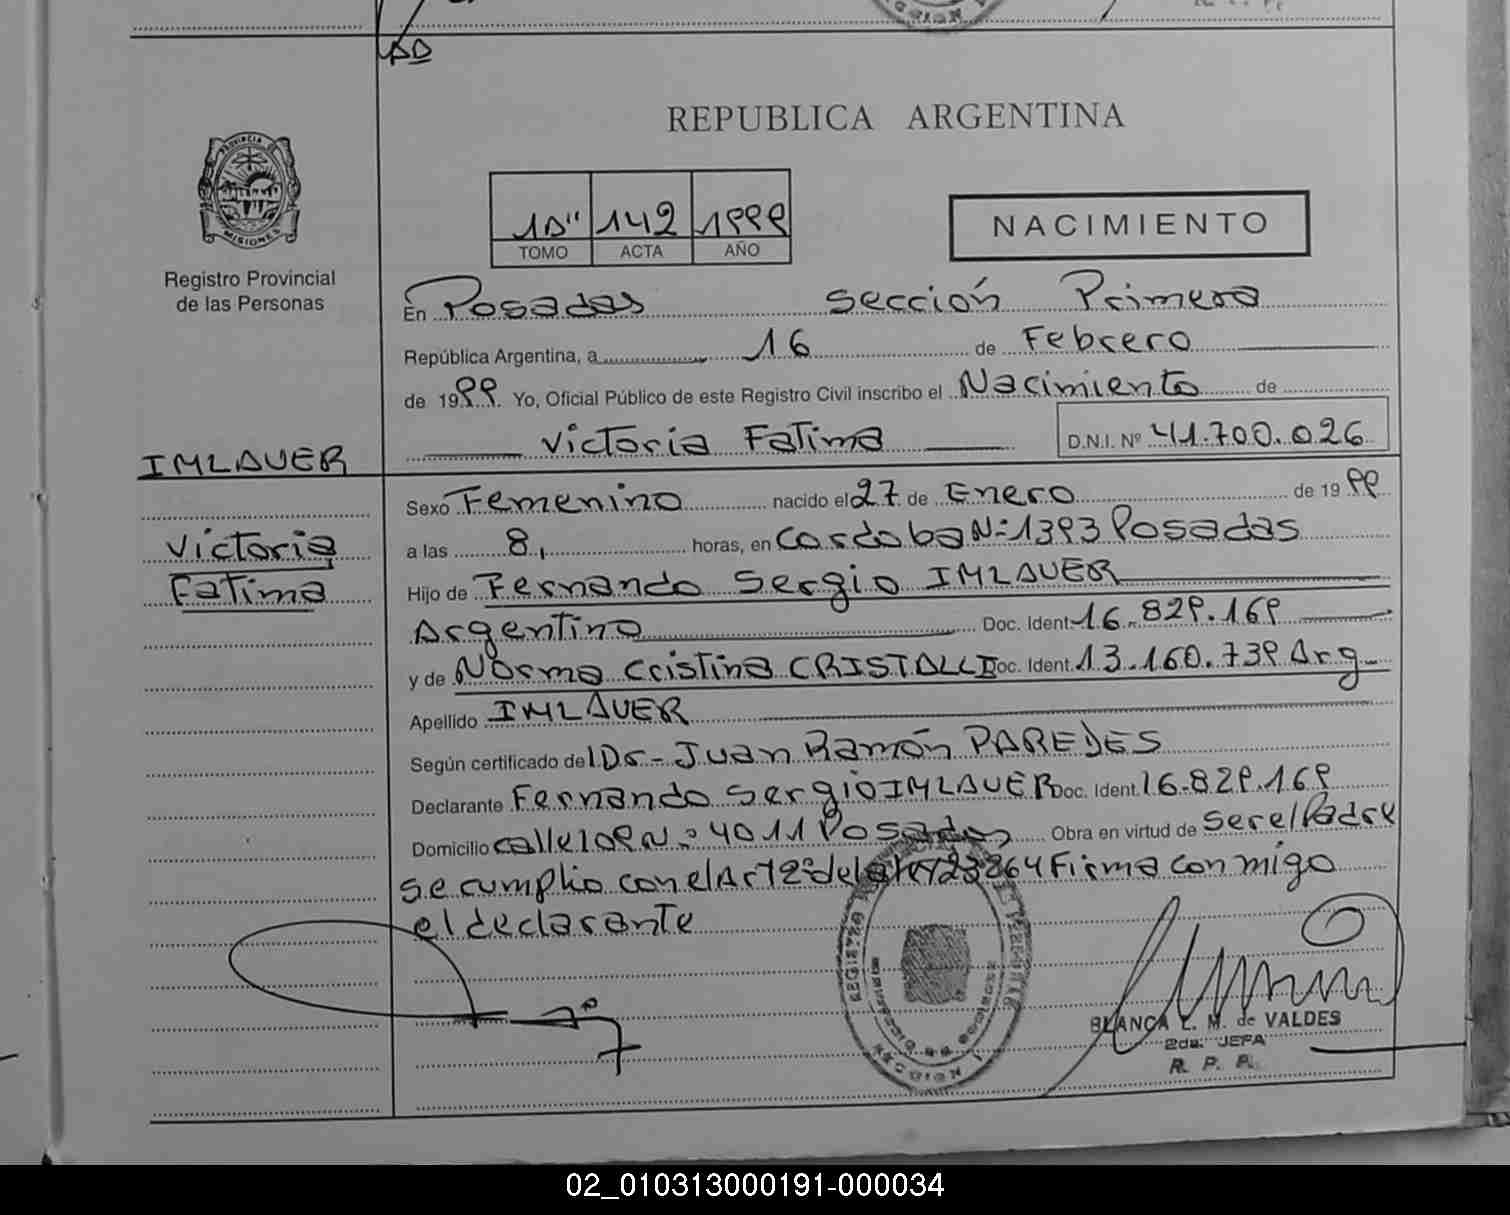 AD
REPUBLICA ARGENTINA
PROVINCIA DE
MISIONES
Registro Provincial
de las Personas
1D" 142 1999
TOMO ACTA AÑO
NACIMIENTO
En Posadas sección Primera
República Argentina, a 16 de Febrero
de 1999. Yo, Oficial Público de este Registro Civil inscribo el Nacimiento de
Victoria Fatima D.N.I. Nº 41.700.026
IMLAUER
Sexo Femenino nacido el 27 de Enero de 1999
Victoria
Fatima
a las 8, horas, en Cordoba N:1393 Posadas
Hijo de Fernando Sergio IMLAUER
Argentino Doc. Ident. 16.829.169
y de Norma Cristina CRISTALLI Doc. Ident. 13.160.739 Arg
Apellido IMLAUER
Según certificado del Dr. Juan Ramón PAREDES
Declarante Fernando Sergio IMLAUER Doc. Ident. 16.829.169
Domicilio calle 109 N: 4011 Posadas Obra en virtud de ser el Padre
se cumplio con el Art 2º de la Ley 23264 Firma conmigo
el declarante
BLANCA L. M. de VALDES
2da. JEFA
R. P. P.
02_010313000191-000034